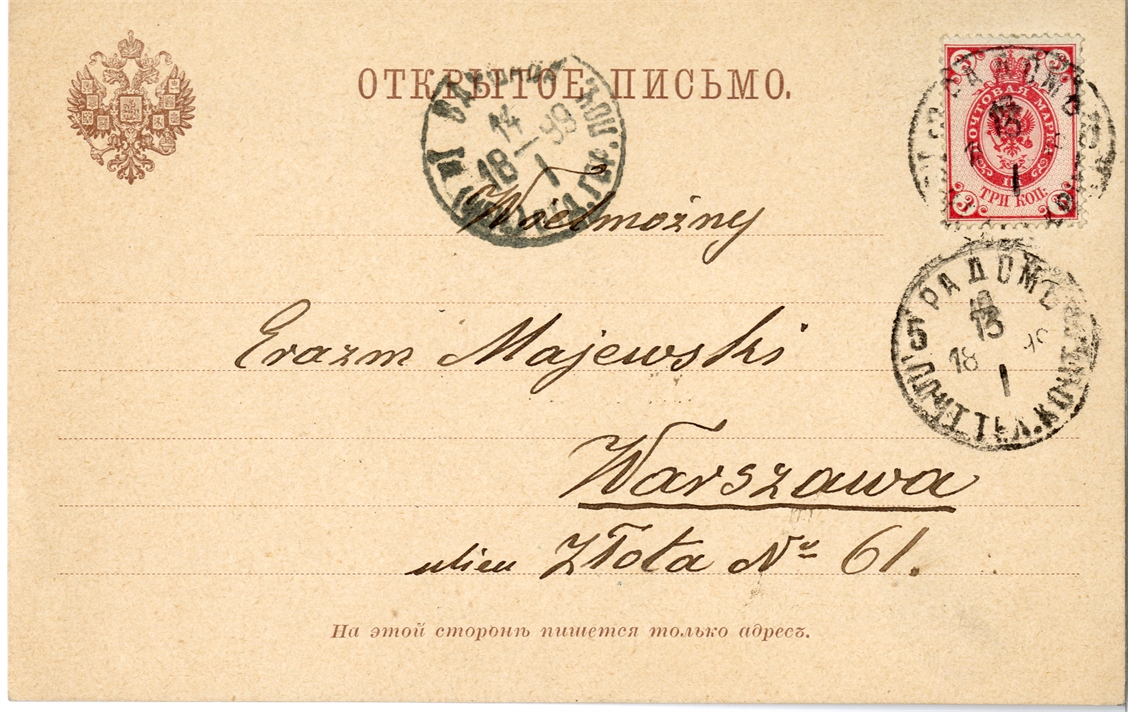 ОТКРЫТОЕ ПИСЬМО.
ПОЧТОВАЯ МАРКА
ТРИ КОП.
3 3 3
РАДОМЪ
13
1
14
18 98
1
РАДОМЪ
5
13
18
1
Wielmożny
Erazm Majewski
Warszawa
ulica Złota Nu 61.
На этой сторонѣ пишется только адресъ.